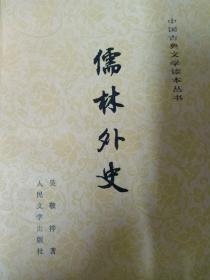 中国古典文学读本丛书
儒林外史
吴敬梓 著
人民文学出版社